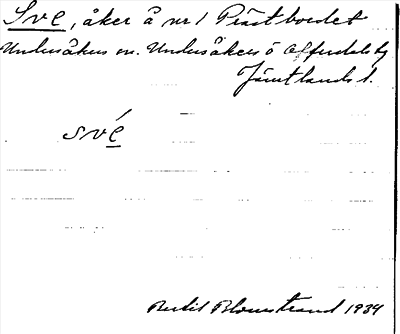 Sve, åker å nr 1 Prästbordet
Undersåkers sn. Undersåkers o Offerdals tg
Jämtlands l.
své
Bertil Blomstrand 1934